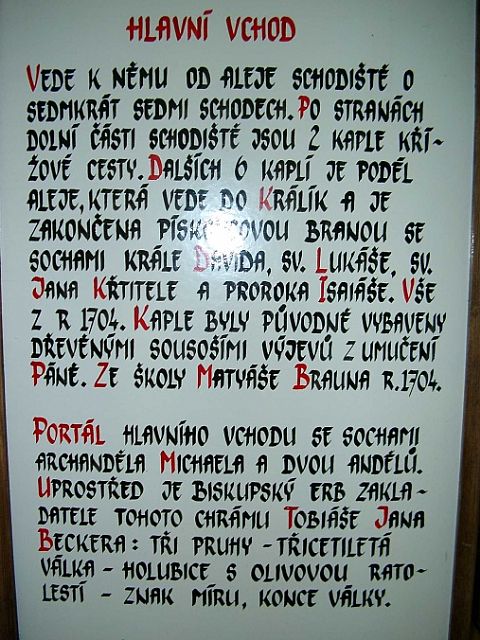 HLAVNÍ VCHOD
VEDE K NĚMU OD ALEJE SCHODIŠTĚ O
SEDMKRÁT SEDMI SCHODECH. PO STRANÁCH
DOLNÍ ČÁSTI SCHODIŠTĚ JSOU 2 KAPLE KŘÍ-
ŽOVÉ CESTY. DALŠÍCH 6 KAPLÍ JE PODÉL
ALEJE, KTERÁ VEDE DO KRÁLÍK A JE
ZAKONČENA PÍSKOVCOVOU BRANOU SE
SOCHAMI KRÁLE DAVIDA, SV. LUKÁŠE, SV.
JANA KŘTITELE A PROROKA ISAIÁŠE. VŠE
Z R 1704. KAPLE BYLY PŮVODNĚ VYBAVENY
DŘEVĚNÝMI SOUSOŠÍMI VÝJEVŮ Z UMUČENÍ
PÁNĚ. ZE ŠKOLY MATYÁŠE BRAUNA R. 1704.
PORTÁL HLAVNÍHO VCHODU SE SOCHAMI
ARCHANDĚLA MICHAELA A DVOU ANDĚLŮ.
UPROSTŘED JE BISKUPSKÝ ERB ZAKLA-
DATELE TOHOTO CHRÁMU TOBIÁŠE JANA
BECKERA: TŘI PRUHY - TŘICETILETÁ
VÁLKA - HOLUBICE S OLIVOVOU RATO-
LESTÍ - ZNAK MÍRU, KONCE VÁLKY.